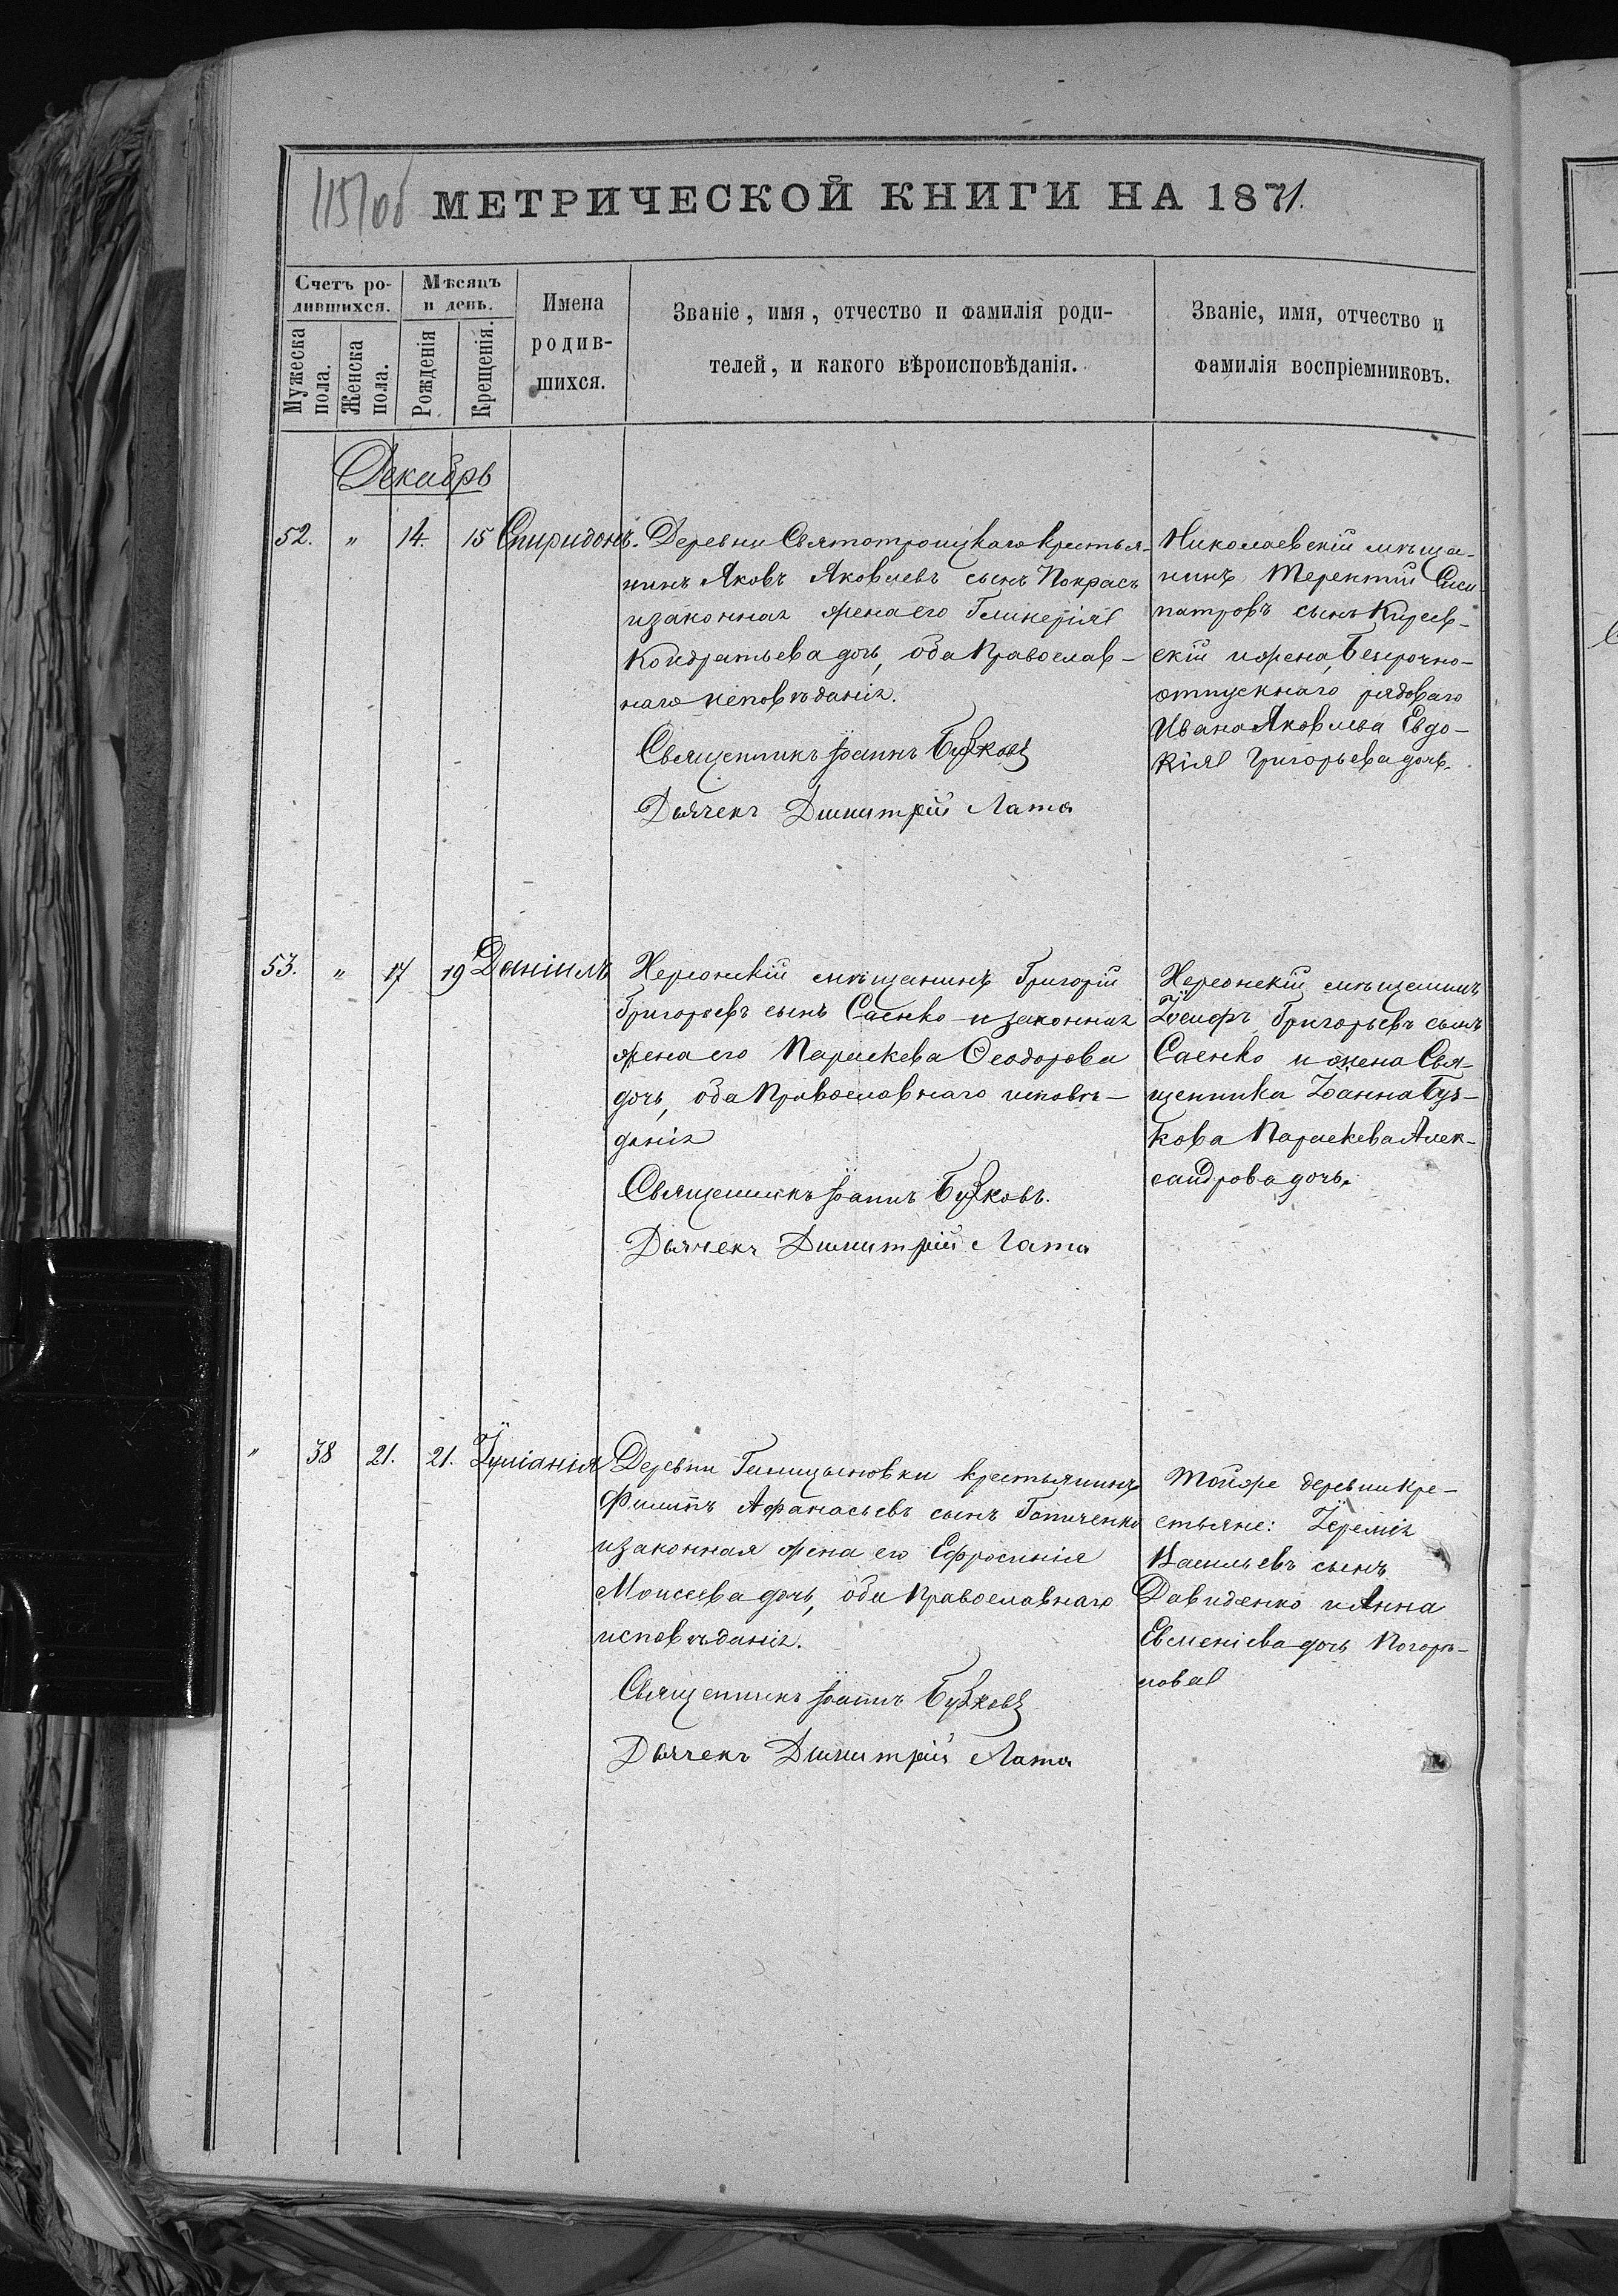 115 об
МЕТРИЧЕСКОЙ КНИГИ НА 1871.
Счетъ ро-
дившихся.
Мѣсяцъ
и день.
Мужеска
пола.
Женска
пола.
Рожденія
Крещенія.
Имена
родив-
шихся.
Званіе, имя, отчество и фамилія роди-
телей, и какого вѣроисповѣданія.
Званіе, имя, отчество и
фамилія воспріемниковъ.
Декабрь
52. " 14. 15 Спиридонъ.
Деревни Святотроицкаго крестья-
нинъ Яковъ Яковлевъ сынъ Покрасъ
и законная жена его Гликерія
Кондратьева дочь, оба Православ-
наго исповѣданія.
Священникъ Іоаннъ Бузковъ
Дьячекъ Димитрій Лата
Николаевскій мѣща-
нинъ Терентій Соси-
патровъ сынъ Киреев-
скій и жена, Безсрочно-
отпускнаго рядоваго
Ивана Яковлева Евдо-
кія Григорьева дочь.
53. " 17 19 Даніилъ
Херсонскій мѣщанинъ Григорій
Григорьевъ сынъ Саенко и законная
жена его Параскева Ѳеодорова
дочь, оба Православнаго исповѣ-
данія
Священникъ Іоаннъ Бузковъ.
Дьячекъ Димитрій Лата
Херсонскій мѣщанинъ
Іосифъ Григорьевъ сынъ
Саенко и жена Свя-
щенника Іоанна Буз-
кова Параскева Алек-
сандрова дочь.
" 38 21. 21. Іуліанія
Деревни Галицыновки крестьянинъ
Филиппъ Афанасьевъ сынъ
и законная жена его Ефросинія
Моисеева дочь, оба Православнаго
исповѣданія.
Священникъ Іоаннъ Бузковъ
Дьячекъ Димитрій Лата
Той же деревни кре-
стьяне: Іеремія
Васильевъ сынъ
Давиденко и Анна
Евменіева дочь Погорѣ-
лова